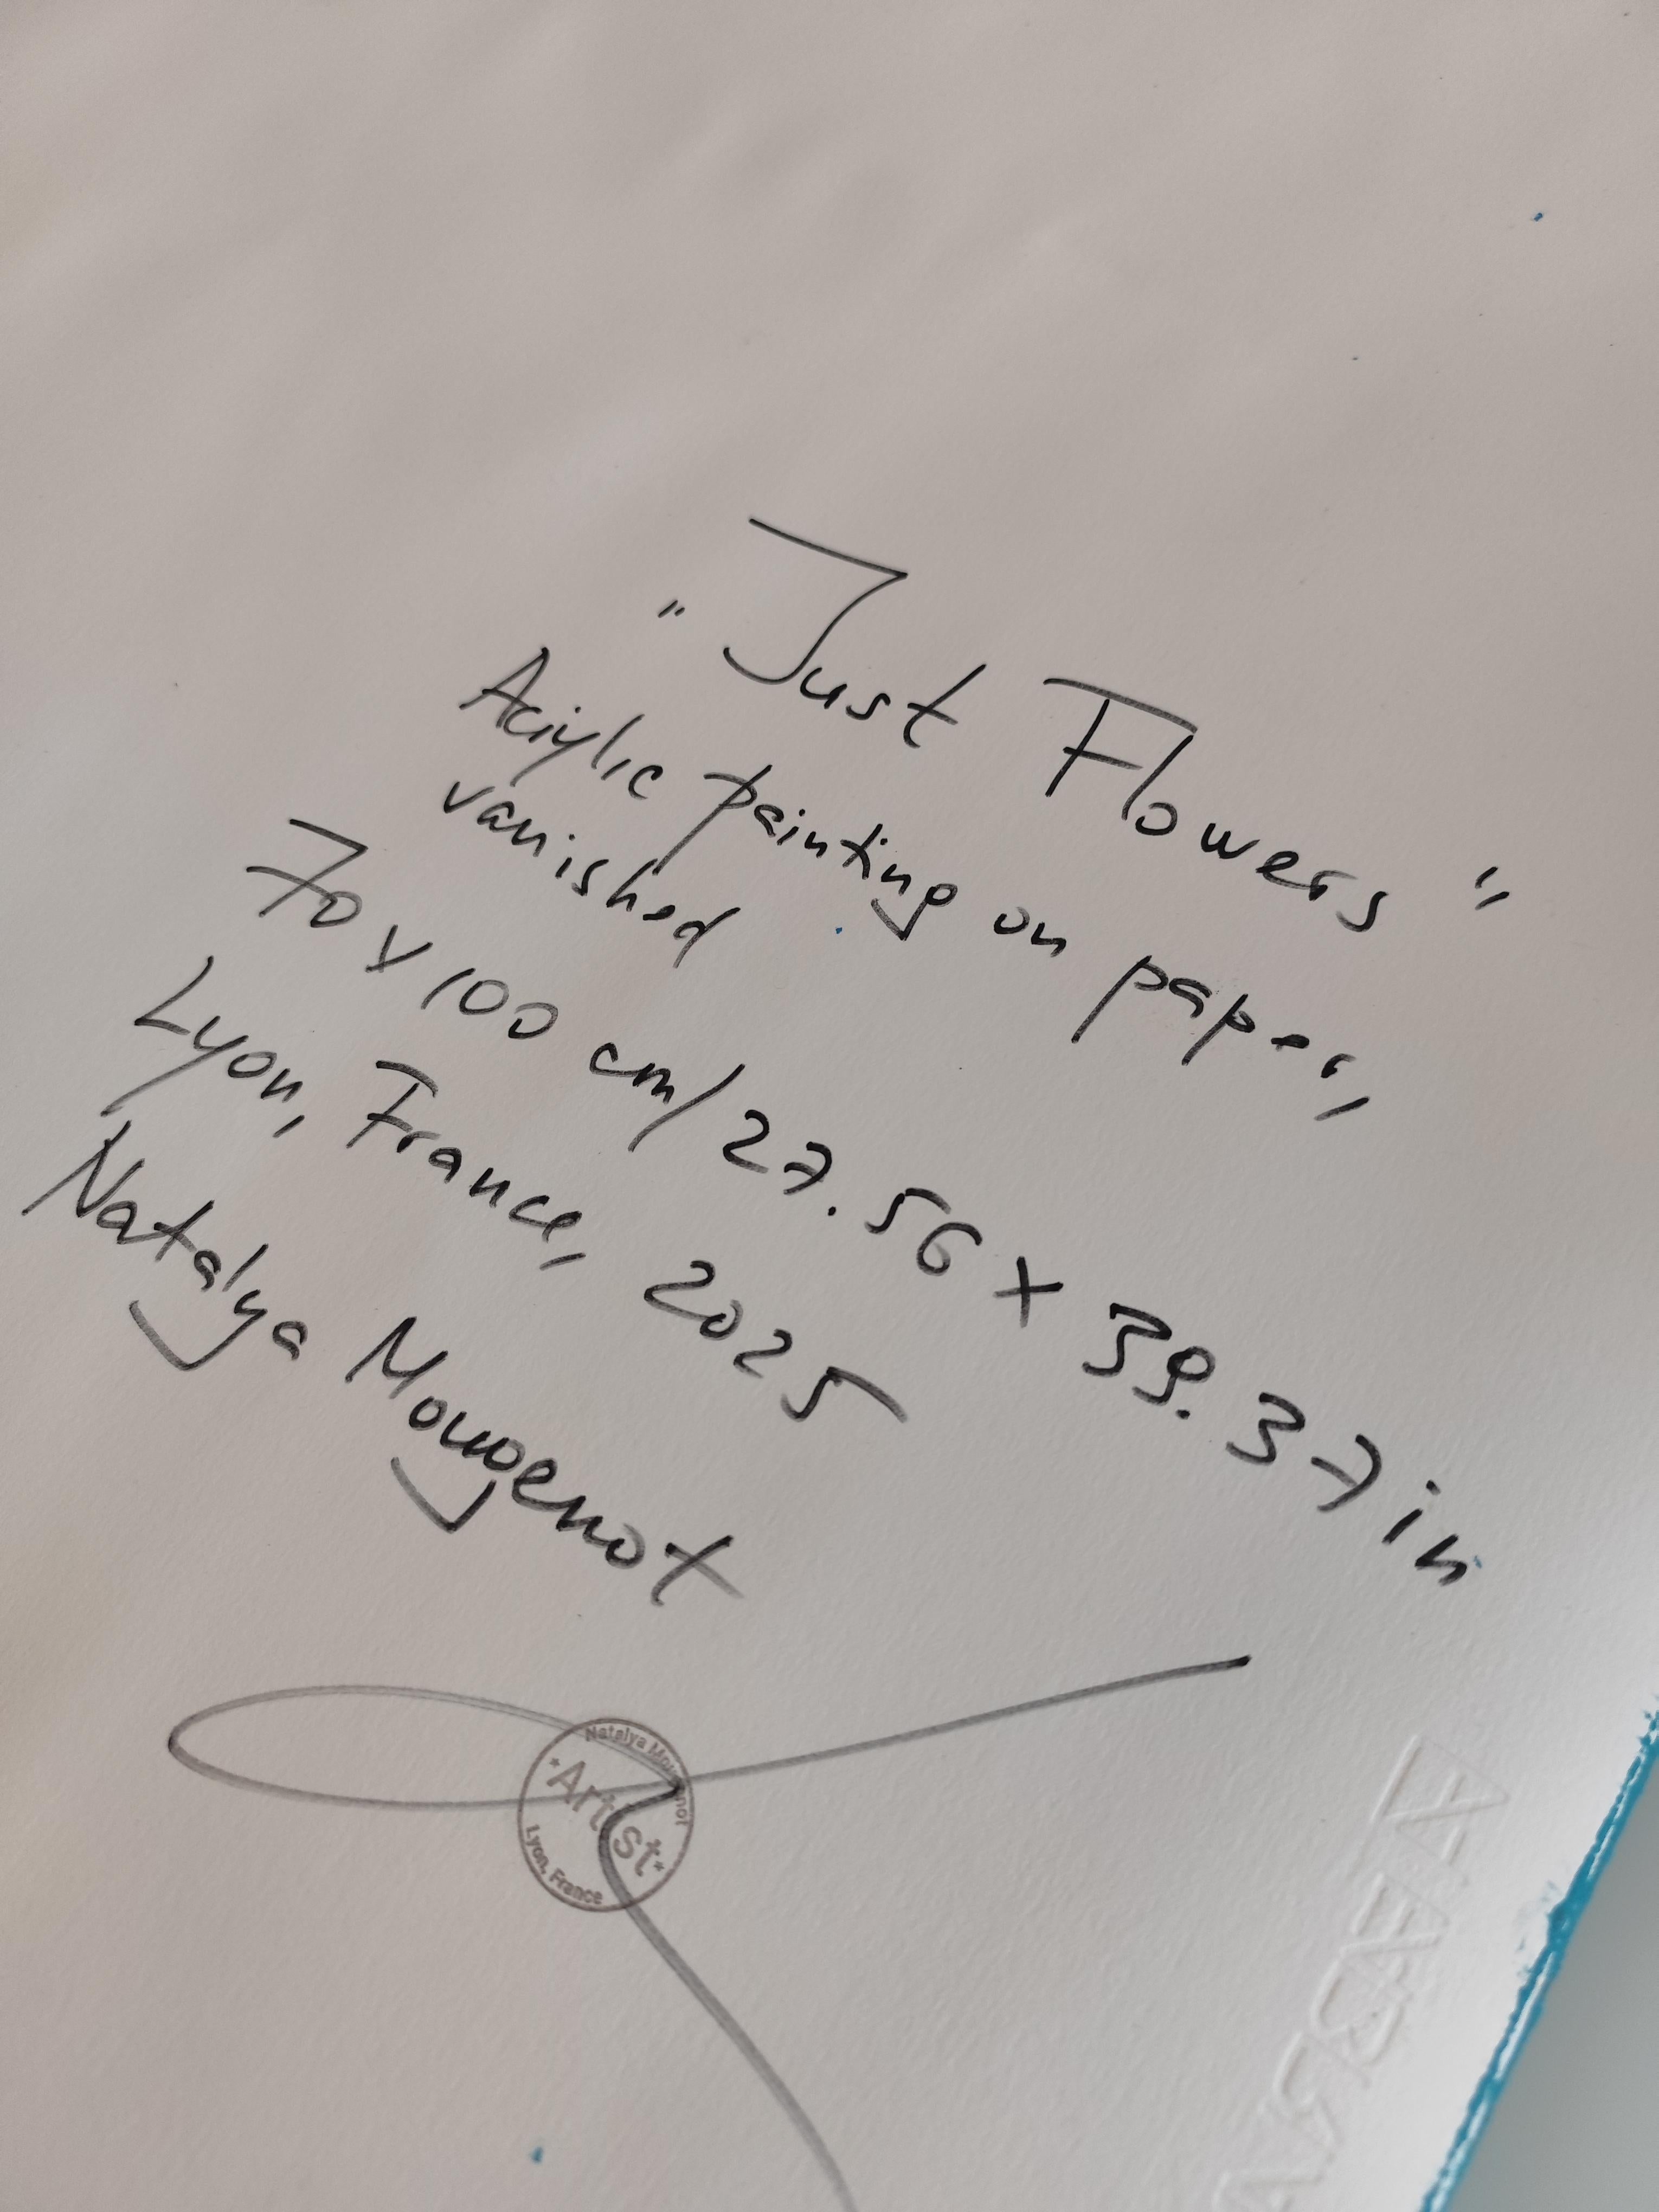 "Just Flowers"
Acrylic painting on paper,
vanished
70 x 100 cm/27.56 x 39.37 in
Lyon, France, 2025
Natalya Mougenot
Natalya Mougenot
*Artist*
Lyon, France